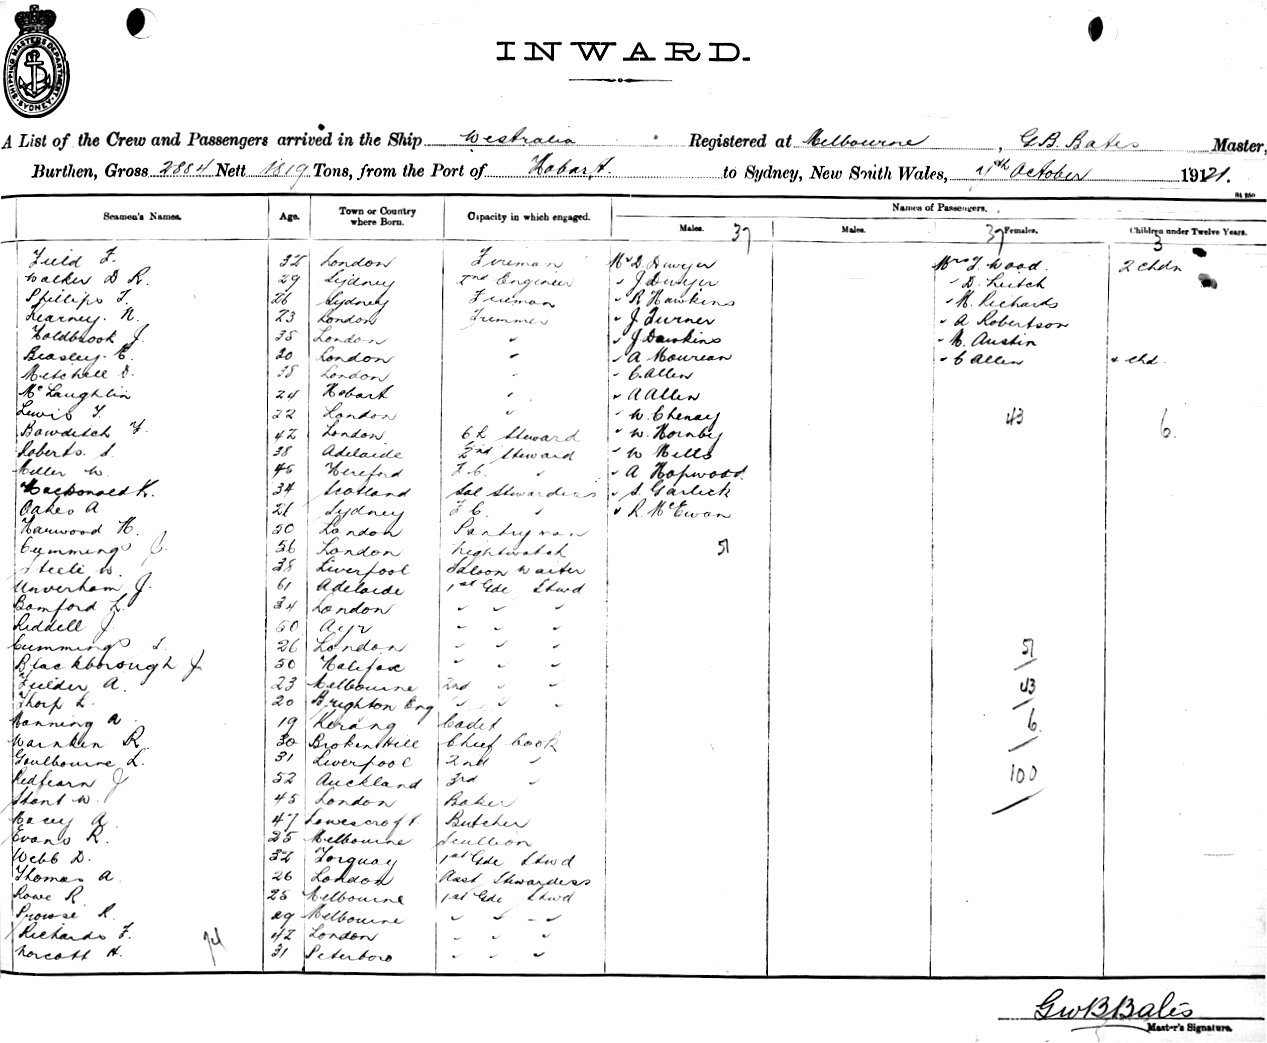 SHIPPING MASTERS DEPARTMENT SYDNEY
INWARD.
A List of the Crew and Passengers arrived in the Ship Westralia Registered at Melbourne, G.B. Bates Master,
Burthen, Gross 2884 Nett 1819 Tons, from the Port of Hobart. to Sydney, New South Wales, October 1921.
Seamen's Names. Age. Town or Country where Born. Capacity in which engaged. Names of Passengers.
Males. 37 Males. 37 Females. Children under Twelve Years. 3
Field F. London Fireman Mr D. Dwyer Mrs J. Wood. 2 chdn
Walker D R. 29 Sydney 2nd Engineer " J Dwyer " D. Leitch
Phillips T. 26 Sydney Fireman " R Hawkins " M. Richards
Kearney. N. 23 London Trimmer " J. Turner " A Robertson
Holdbrook J. 35 London " " J Dawkins " M. Austin
Beasley. 20 London " " A Mourean " C Allen " chd.
Mitchell D. 38 London " " C. Allen
McLaughlin 24 Hobart " " A Allen
Lewis T. 22 London " " W. Chenay 43 6
Bowditch 42 London Ch Steward " W. Hornby
Roberts. S. 38 Adelaide 2nd Steward " W Mills
Miller W. 45 Hereford F.C. " " A Hopwood
MacDonald K. 34 Scotland Sal Stewardess " S. Garlick
Oakes A 21 Sydney F C. " " R. McEwan
Harwood H. 50 London Pantryman
Cummings J. 56 London Nightwatch 51
Steele W. 38 Liverpool Saloon Waiter
Unverham J. 61 Adelaide 1st Gde Stwd
Bamford L. 34 London " " "
Riddell J. 50 Ayr " " "
Cummings S. 26 London " " " 51
Blackborough J 50 Halifax " " "
Fielder A. 23 Melbourne 2nd " " 43
Thorp L. 20 Brighton Eng " " "
Manning A 19 Kerang Cadet 6
Warnken R. 30 Broken Hill Chief Cook
Goulbourne L. 31 Liverpool 2nd " 100
Redfearn J 52 Auckland 3rd "
Stant W. 45 London Baker
Macey A. 47 Lowescroft Butcher
Evans R. 25 Melbourne Scullion
Webb D. 32 Torquay 1st Gde Stwd
Thomas A. 26 London Asst Stewardess
Rowe R. 25 Melbourne 1st Gde Stwd
Prowse R. 29 Melbourne " " "
Richards F. 42 London " " "
Norcott H. 74 31 Peterboro " " "
GWBBates
Master's Signature.